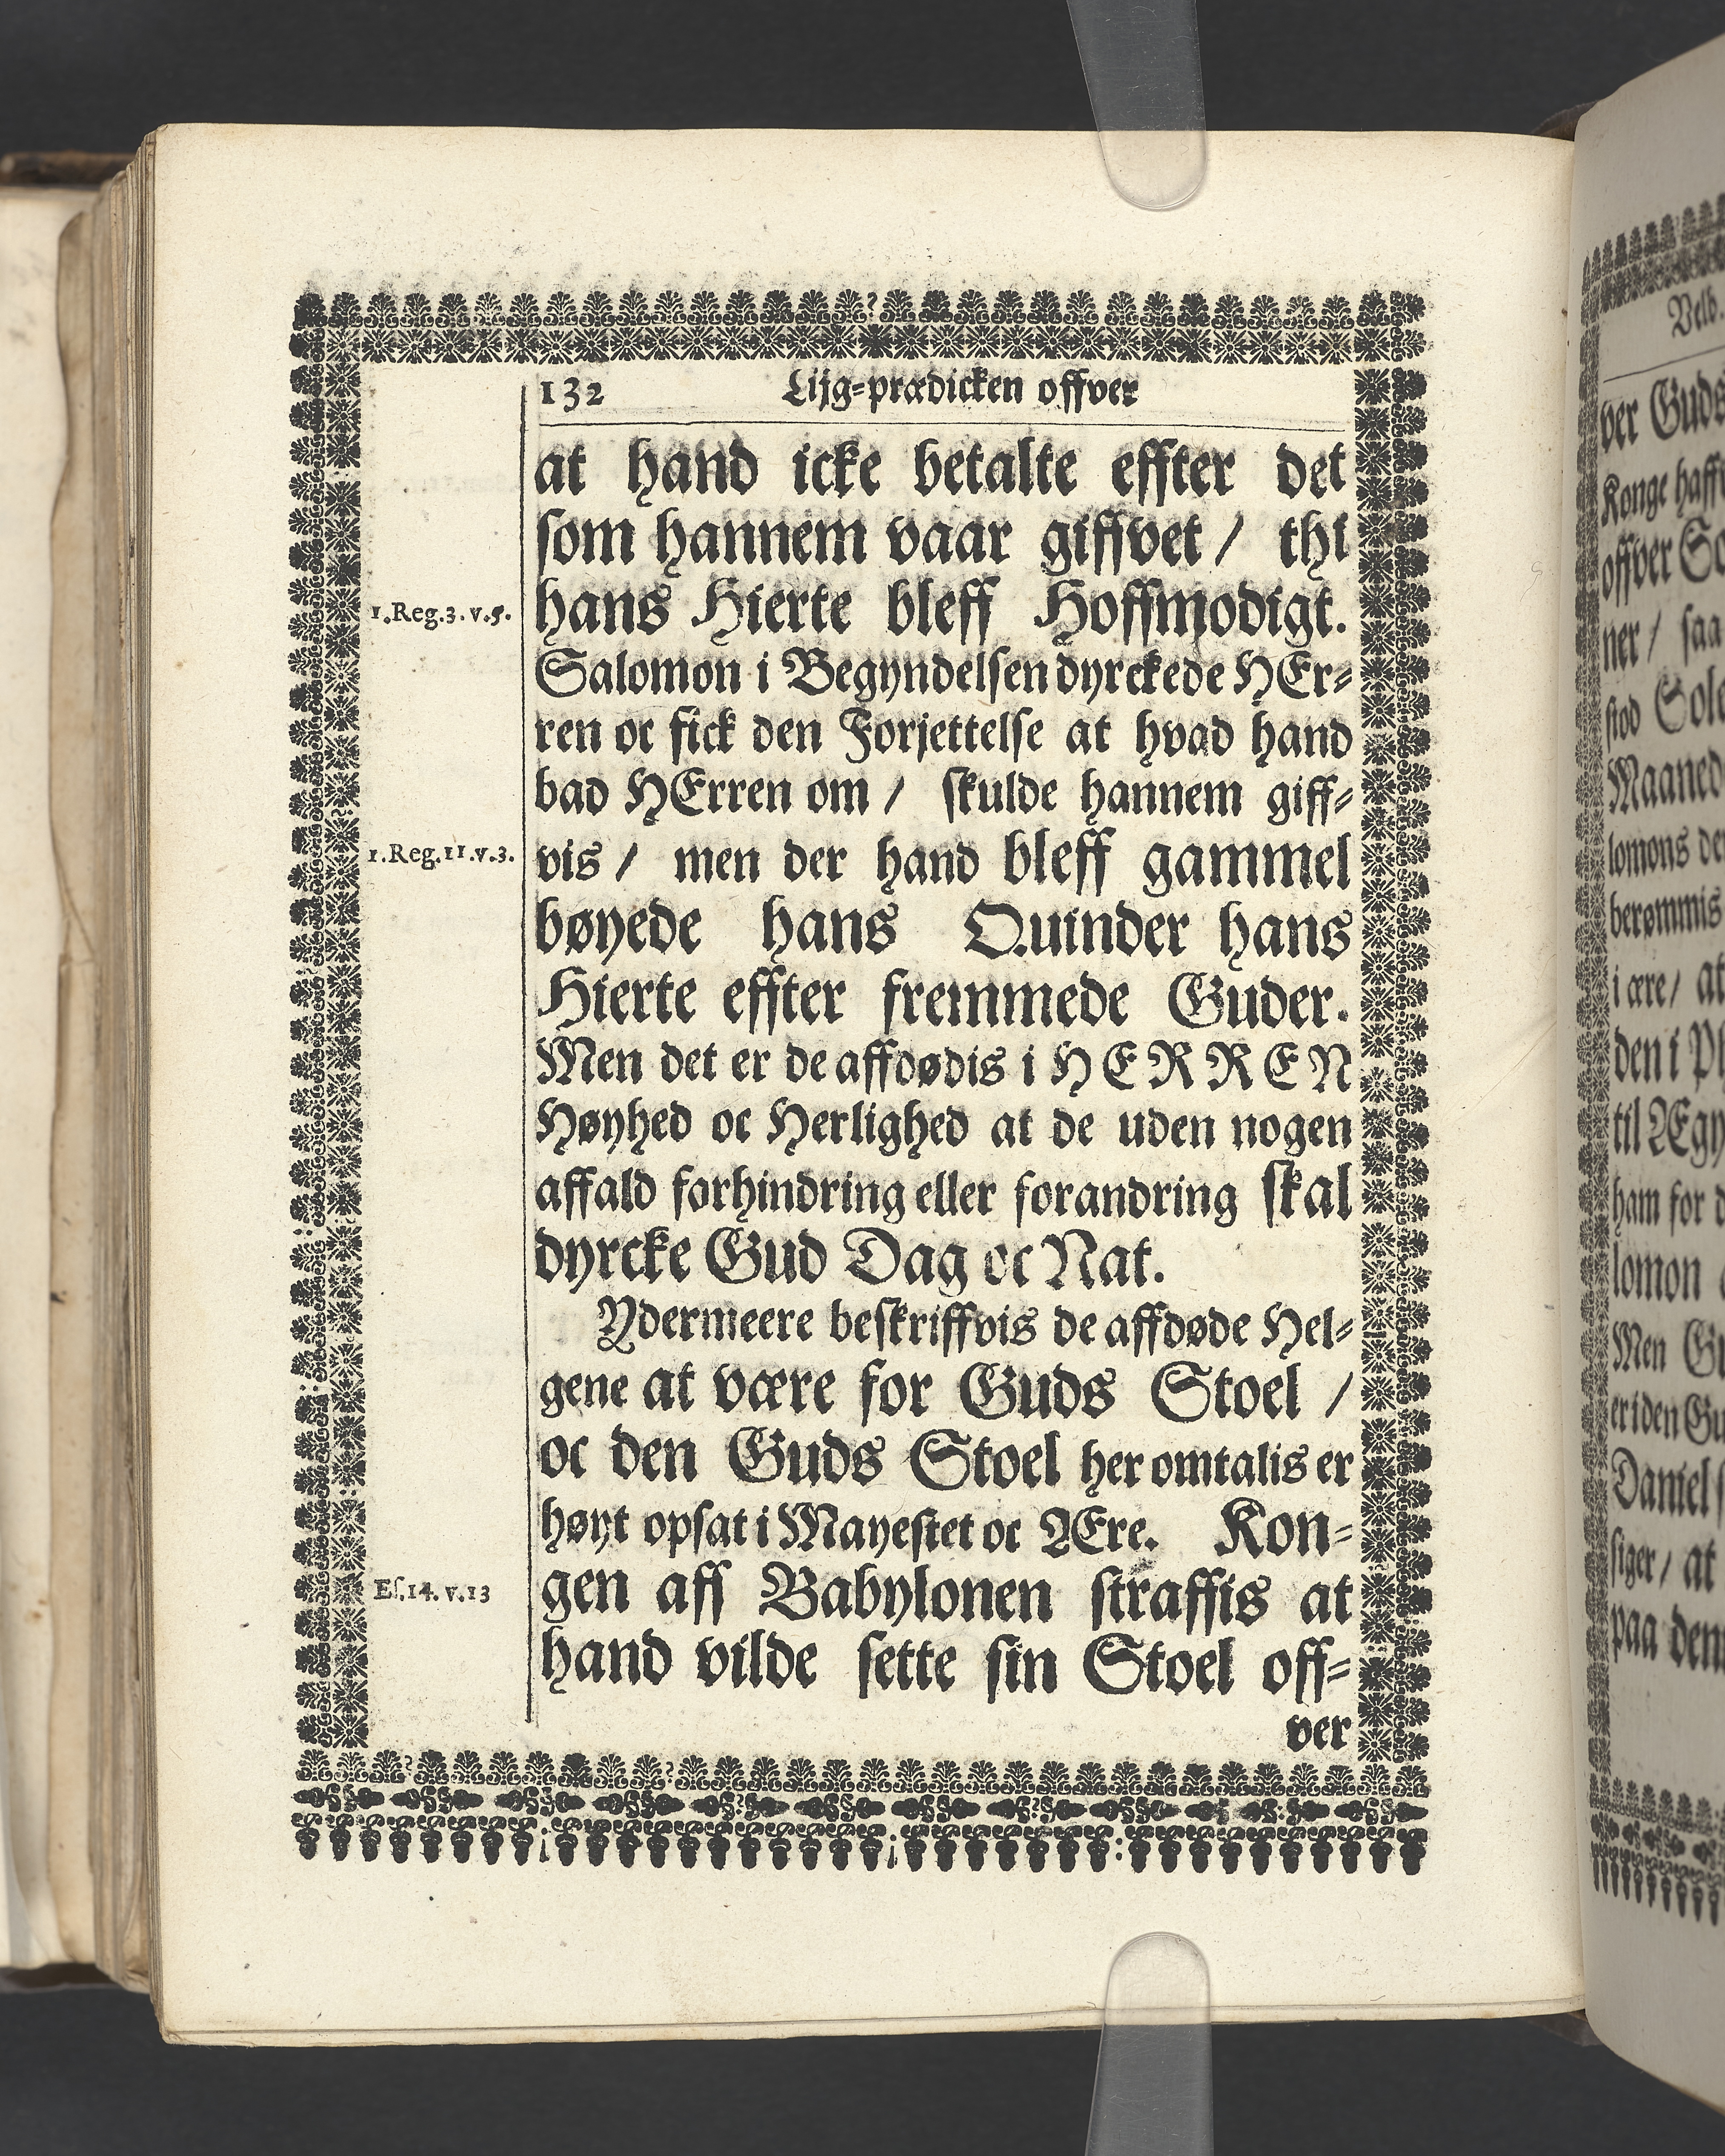 132 Lijg-prædicken offver
at hand icke betalte effter det
som hannem vaar giffvet / thi
1.Reg.3.v.5. hans Hierte bleff Hoffmodigt.
Salomon i Begyndelsen dyrckede HEr-
ren oc fick den Forjettelse at hvad hand
bad HErren om / skulde hannem giff-
1.Reg.11.v.3. vis / men der hand bleff gammel
bøyede hans Quinder hans
Hierte effter fremmede Guder.
Men det er de affdødis i HERREN
Høyhed oc Herlighed at de uden nogen
affald forhindring eller forandring skal
dyrcke Gud Dag oc Nat.
Ydermeere beskriffvis de affdøde Hel-
gene at være for Guds Stoel /
oc den Guds Stoel her omtalis er
høyt opsat i Mayestet oc Ære. Kon-
Es.14.v.13 gen aff Babylonen straffis at
hand vilde sette sin Stoel off-
ver
ver Guds
Konge haff
offver So
ner / saa
stod Sol
Maaned
lomons de
berømmis
i ære / at
den i Ph
til Ægy
ham for d
lomon
Men Gu
er i den Gu
Daniel s
siger / at
paa den